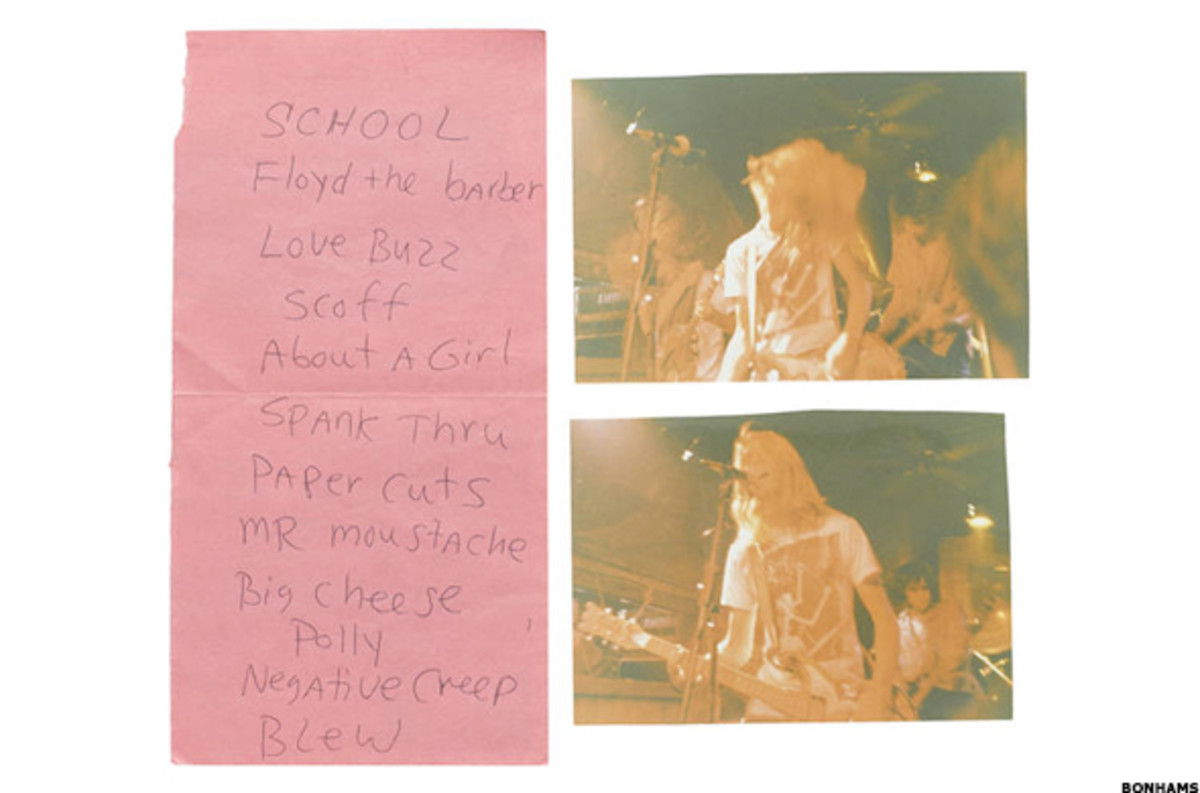 SCHOOL
Floyd the barber
Love Buzz
Scoff
About A Girl
SPANK Thru
PAPer cuts
MR moustAche
Big cheese
Polly
NegAtive Creep
BLeW
BONHAMS